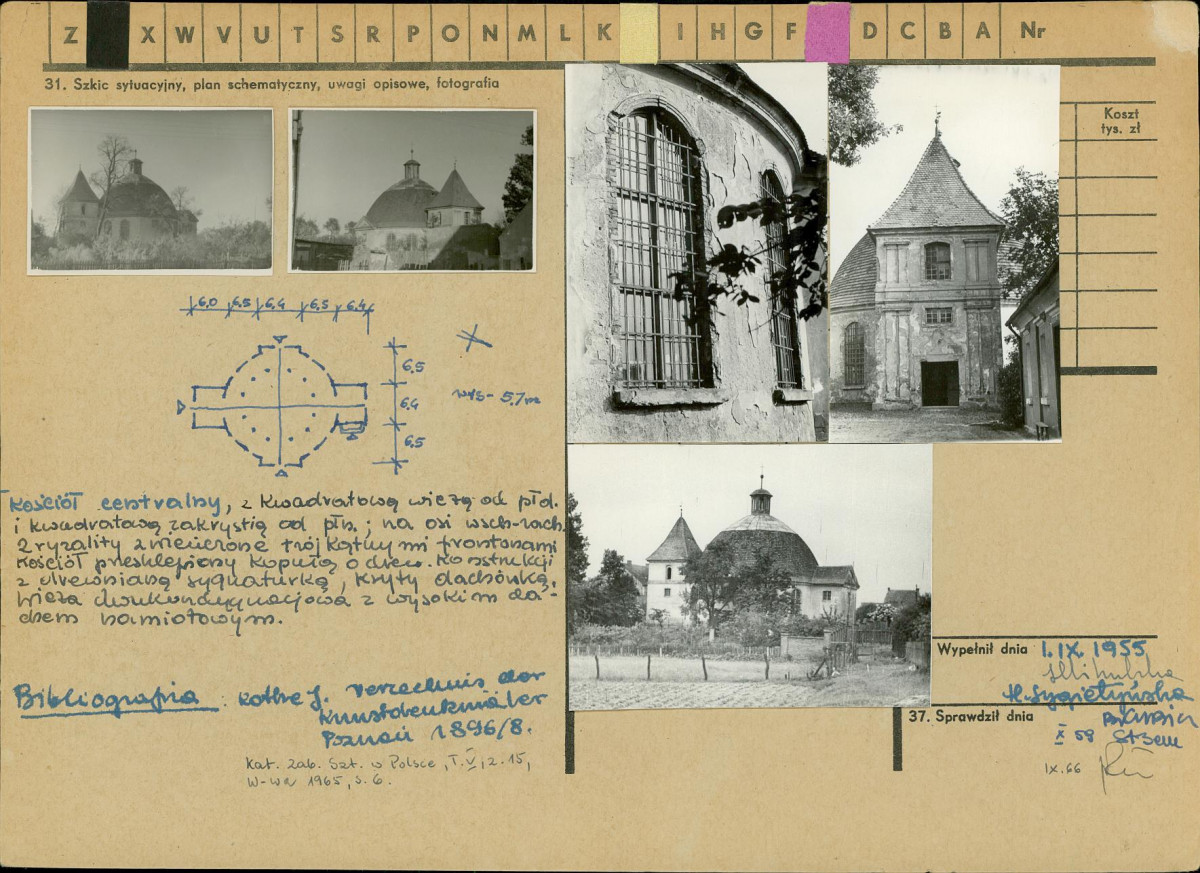 Z X W V U T S R P O N M L K I H G F D C B A Nr
31. Szkic sytuacyjny, plan schematyczny, uwagi opisowe, fotografia
Koszt
tys. zł
6.0 6.5 6.4 6.5 6.4
6,5
6,4
6,5
wys - 5,7 m
Kościół centralny, z kwadratową wieżą od płd.
i kwadratową zakrystią od płn.; na osi wsch-zach.
2 ryzality zwieńczone trójkątnymi frontonami
Kościół przesklepiony kopułą o drew. konstrukcji
z drewnianą sygnaturką, kryty dachówką,
wieża dwukondygnacjowa z wysokim da-
chem namiotowym.
Bibliografia : Kothe J. Verzechnis der
Kunstdenkmäler
Poznań 1896/8.
Kat. Zab. Szt. w Polsce, T. V, z. 15,
W-wa 1965, s. 6.
Wypełnił dnia 1. IX. 1955
H. Sygietyńska
37. Sprawdził dnia
X 59
IX. 66